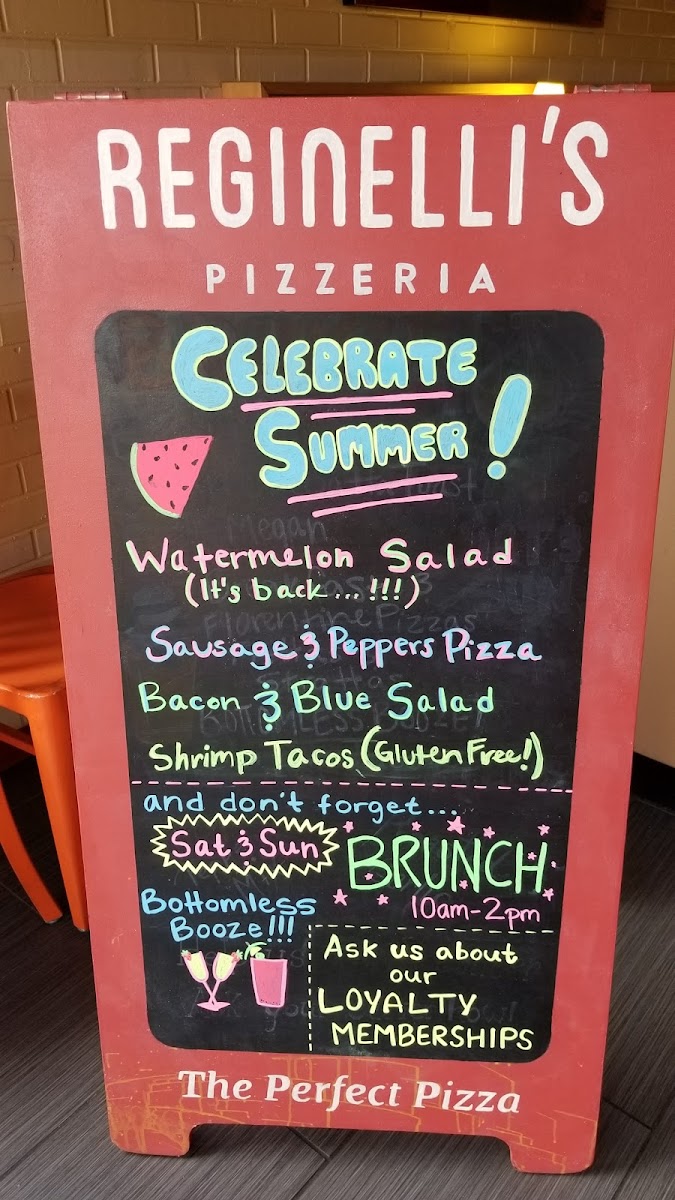 REGINELLI'S
PIZZERIA
CELEBRATE
SUMMER!
Watermelon Salad
(It's back...!!!)
Sausage & Peppers Pizza
Bacon & Blue Salad
Shrimp Tacos (Gluten Free!)
and don't forget...
Sat & Sun
BRUNCH
10am-2pm
Bottomless
Booze!!!
Ask us about
our
LOYALTY
MEMBERSHIPS
The Perfect Pizza